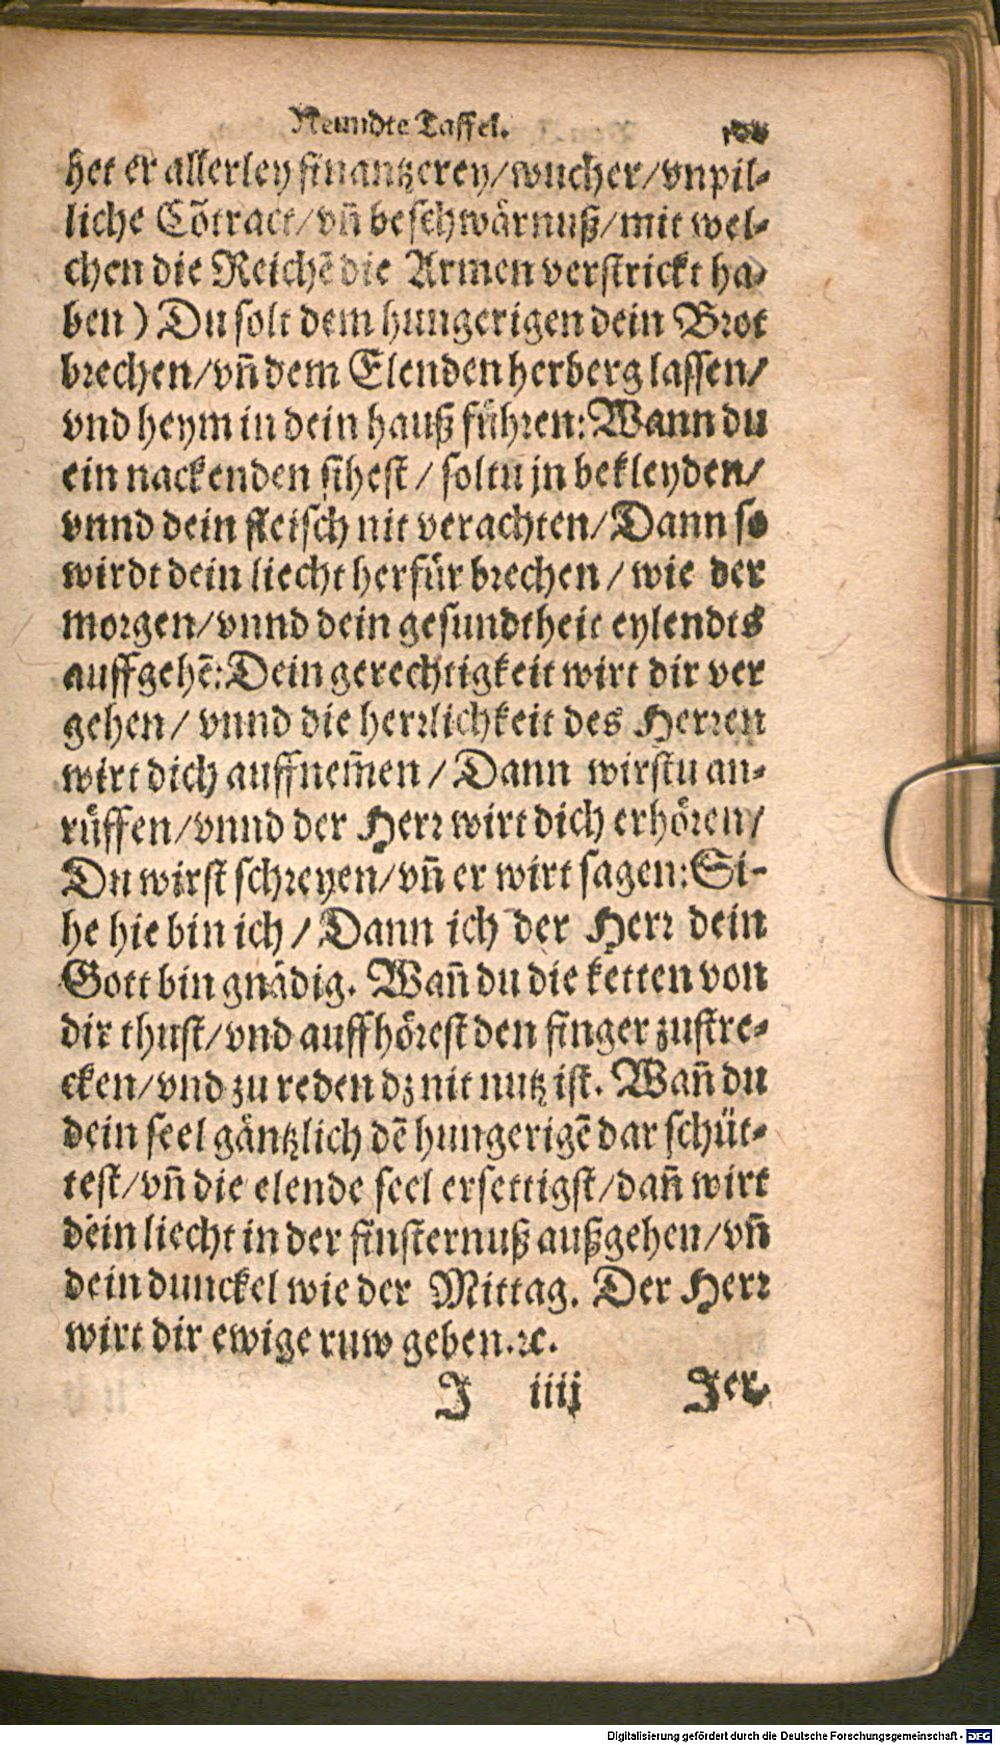 Neundte Taffel.
het er allerley finantzerey/wucher/vnpil-
liche Cõtract/vñ beschwärnuß/mit wel-
chen die Reichẽ die Armen verstrickt ha-
ben) Du solt dem hungerigen dein Brot
brechen/vñ dem Elenden herberg lassen/
vnd heym in dein hauß führen: Wann du
ein nackenden sihest / soltu jn bekleyden/
vnnd dein fleisch nit verachten/Dann so
wirdt dein liecht herfür brechen / wie der
morgen/vnnd dein gesundtheit eylendts
auffgehẽ: Dein gerechtigkeit wirt dir ver
gehen/ vnnd die herrlichkeit des Herren
wirt dich auffnem̃en / Dann wirstu an-
rüffen/vnnd der Herr wirt dich erhören/
Du wirst schreyen/vñ er wirt sagen: Si-
he hie bin ich / Dann ich der Herr dein
Gott bin gnädig. Wañ du die ketten von
dir thust/vnd auffhörest den finger zustre-
cken/vnd zu reden dz nit nutz ist. Wañ du
dein seel gäntzlich dẽ hungerigẽ dar schüt-
test/vñ die elende seel ersettigst/dañ wirt
dein liecht in der finsternuß außgehen/vñ
dein dunckel wie der Mittag. Der Herr
wirt dir ewige ruw geben.ꝛc.
J iiij Jer.
Digitalisierung gefördert durch die Deutsche Forschungsgemeinschaft - DFG